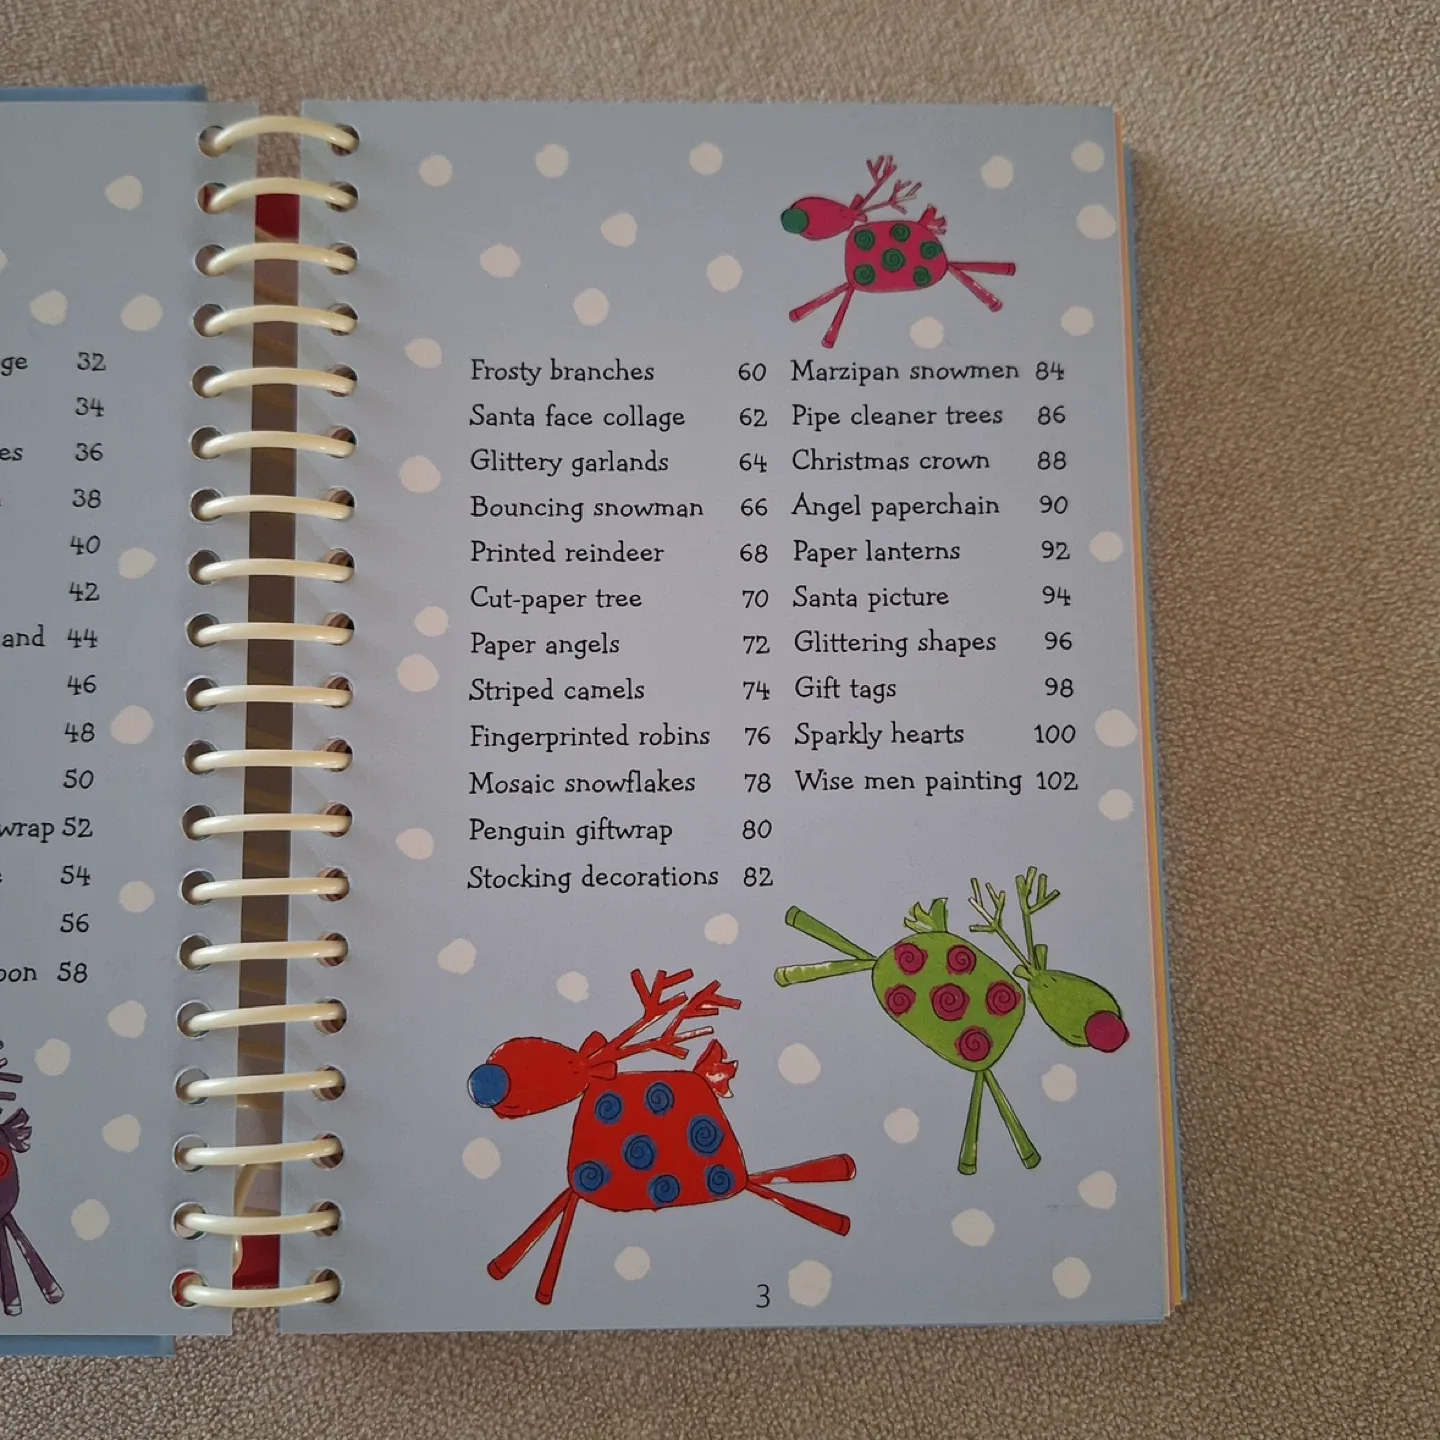 ge 32
34
es 36
38
40
42
and 44
46
48
50
wrap 52
54
56
oon 58
Frosty branches 60
Santa face collage 62
Glittery garlands 64
Bouncing snowman 66
Printed reindeer 68
Cut-paper tree 70
Paper angels 72
Striped camels 74
Fingerprinted robins 76
Mosaic snowflakes 78
Penguin giftwrap 80
Stocking decorations 82
Marzipan snowmen 84
Pipe cleaner trees 86
Christmas crown 88
Angel paperchain 90
Paper lanterns 92
Santa picture 94
Glittering shapes 96
Gift tags 98
Sparkly hearts 100
Wise men painting 102
3